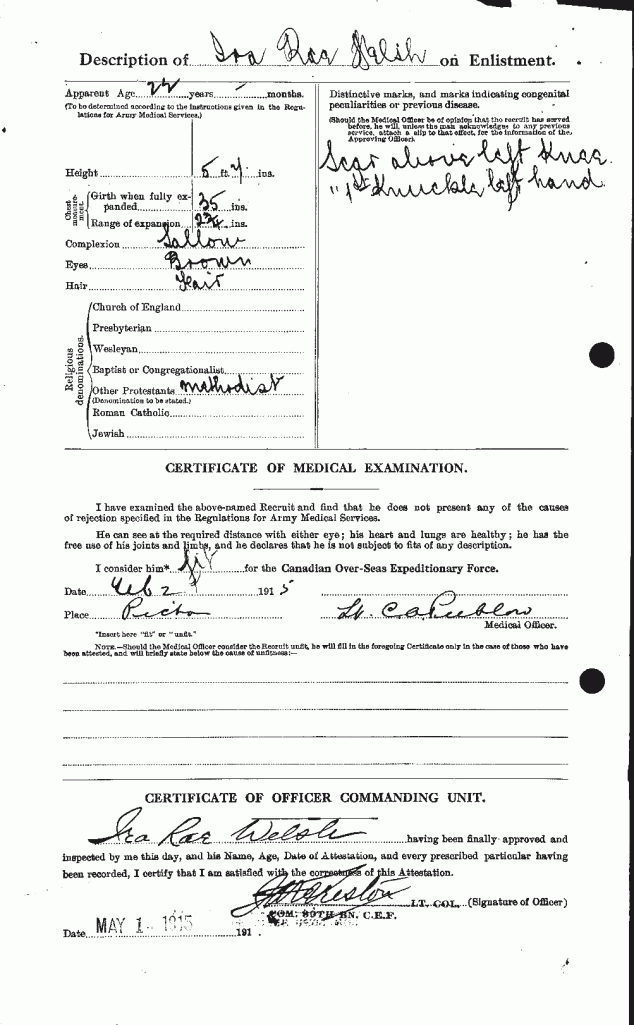 Description of Ira Rae Welsh on Enlistment.
Apparent Age 22 years months.
(To be determined according to the instructions given in the Regu-
lations for Army Medical Services.)
Height 5 ft. 7 ins.
Chest
measure-
ment.
Girth when fully ex-
panded 35 ins.
Range of expansion ins.
Complexion Sallow
Eyes Brown
Hair Fair
Religious
denominations.
Church of England
Presbyterian
Wesleyan
Baptist or Congregationalist
Other Protestants Methodist
(Denomination to be stated.)
Roman Catholic
Jewish
Distinctive marks, and marks indicating congenital
peculiarities or previous disease.
(Should the Medical Officer be of opinion that the recruit has served
before, he will, unless the man acknowledges to any previous
service, attach a slip to that effect, for the information of the
Approving Officer).
Scar above left Knee.
" 1st Knuckle left hand.
CERTIFICATE OF MEDICAL EXAMINATION.
I have examined the above-named Recruit and find that he does not present any of the causes
of rejection specified in the Regulations for Army Medical Services.
He can see at the required distance with either eye; his heart and lungs are healthy; he has the
free use of his joints and limbs, and he declares that he is not subject to fits of any description.
I consider him* fit for the Canadian Over-Seas Expeditionary Force.
Date Feb 2 1915
Place Picton Lt. C A Publow
Medical Officer.
*Insert here "fit" or "unfit."
NOTE.—Should the Medical Officer consider the Recruit unfit, he will fill in the foregoing Certificate only in the case of those who have
been attested, and will briefly state below the cause of unfitness:—
CERTIFICATE OF OFFICER COMMANDING UNIT.
Ira Rae Welsh having been finally approved and
inspected by me this day, and his Name, Age, Date of Attestation, and every prescribed particular having
been recorded, I certify that I am satisfied with the correctness of this Attestation.
LT. COL. (Signature of Officer)
COM. 39TH BN. C.E.F.
Date MAY 1 - 1915 191 .